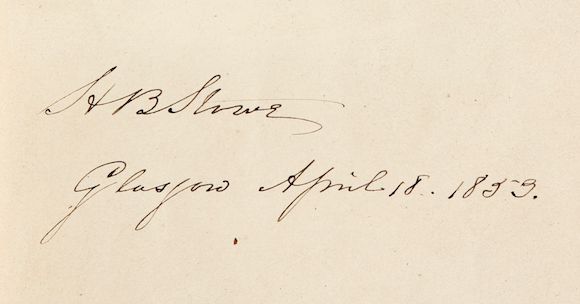 H B Stowe
Glasgow April 18. 1853.